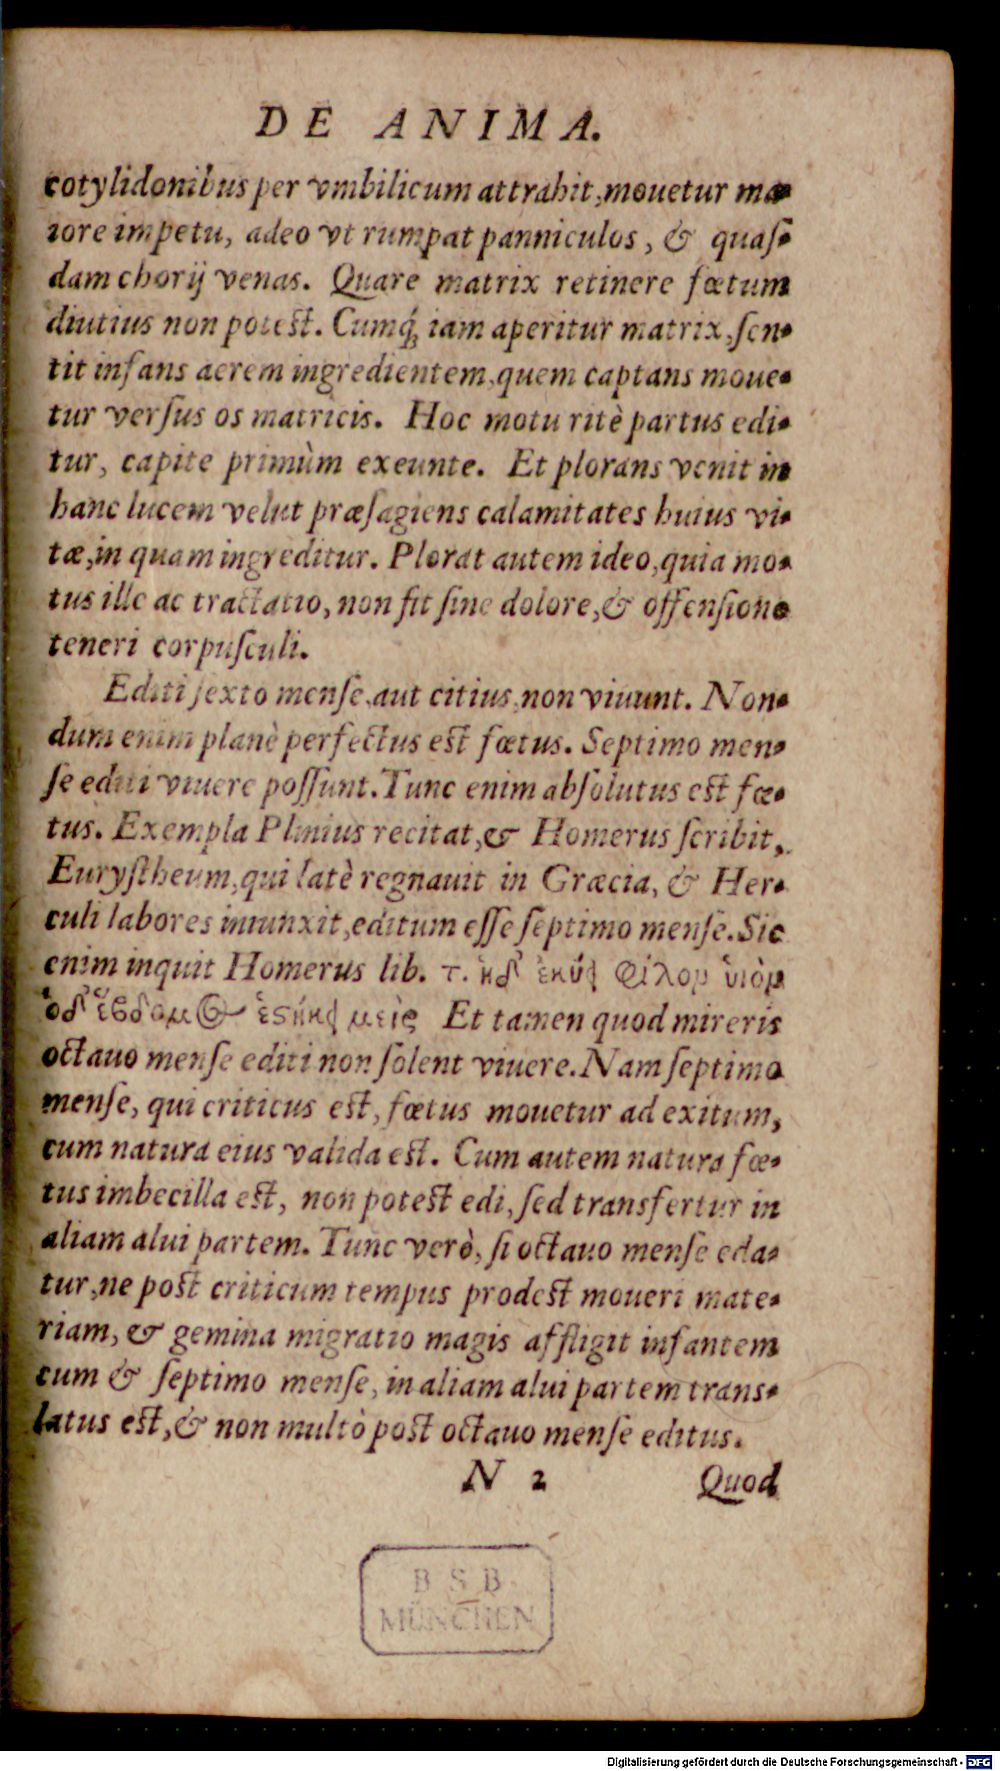 DE ANIMA.
cotylidonibus per vmbilicum attrahit, mouetur ma-
iore impetu, adeo vt rumpat panniculos, & quaſ-
dam chorij venas. Quare matrix retinere fœtum
diutius non poteſt. Cumq́; iam aperitur matrix, ſen-
tit infans aerem ingredientem, quem captans moue-
tur verſus os matricis. Hoc motu ritè partus edi-
tur, capite primùm exeunte. Et plorans venit in
hanc lucem velut præſagiens calamitates huius vi-
tæ, in quam ingreditur. Plorat autem ideo, quia mo-
tus ille ac tractatio, non fit ſine dolore, & offenſione
teneri corpuſculi.
Editi ſexto menſe, aut citius, non viuunt. Non-
dum enim planè perfectus eſt fœtus. Septimo men-
ſe editi viuere poſſunt. Tunc enim abſolutus eſt fœ-
tus. Exempla Plinius recitat, & Homerus ſcribit,
Euryſtheum, qui latè regnauit in Græcia, & Her-
culi labores iniunxit, editum eſſe ſeptimo menſe. Sic
enim inquit Homerus lib. τ. ἡδ' ἐκύει φίλον υἱὸν
ὁδ' ἕβδομος ἑστήκει μεὶς Et tamen quod mireris
octauo menſe editi non ſolent viuere. Nam ſeptimo
menſe, qui criticus eſt, fœtus mouetur ad exitum,
cum natura eius valida eſt. Cum autem natura fœ-
tus imbecilla eſt, non poteſt edi, ſed transfertur in
aliam alui partem. Tunc verò, ſi octauo menſe eda-
tur, ne poſt criticum tempus prodeſt moueri mate-
riam, & gemina migratio magis affligit infantem
cum & ſeptimo menſe, in aliam alui partem trans-
latus eſt, & non multò poſt octauo menſe editus.
N 2 Quod
B S B
MÜNCHEN
Digitalisierung gefördert durch die Deutsche Forschungsgemeinschaft - DFG